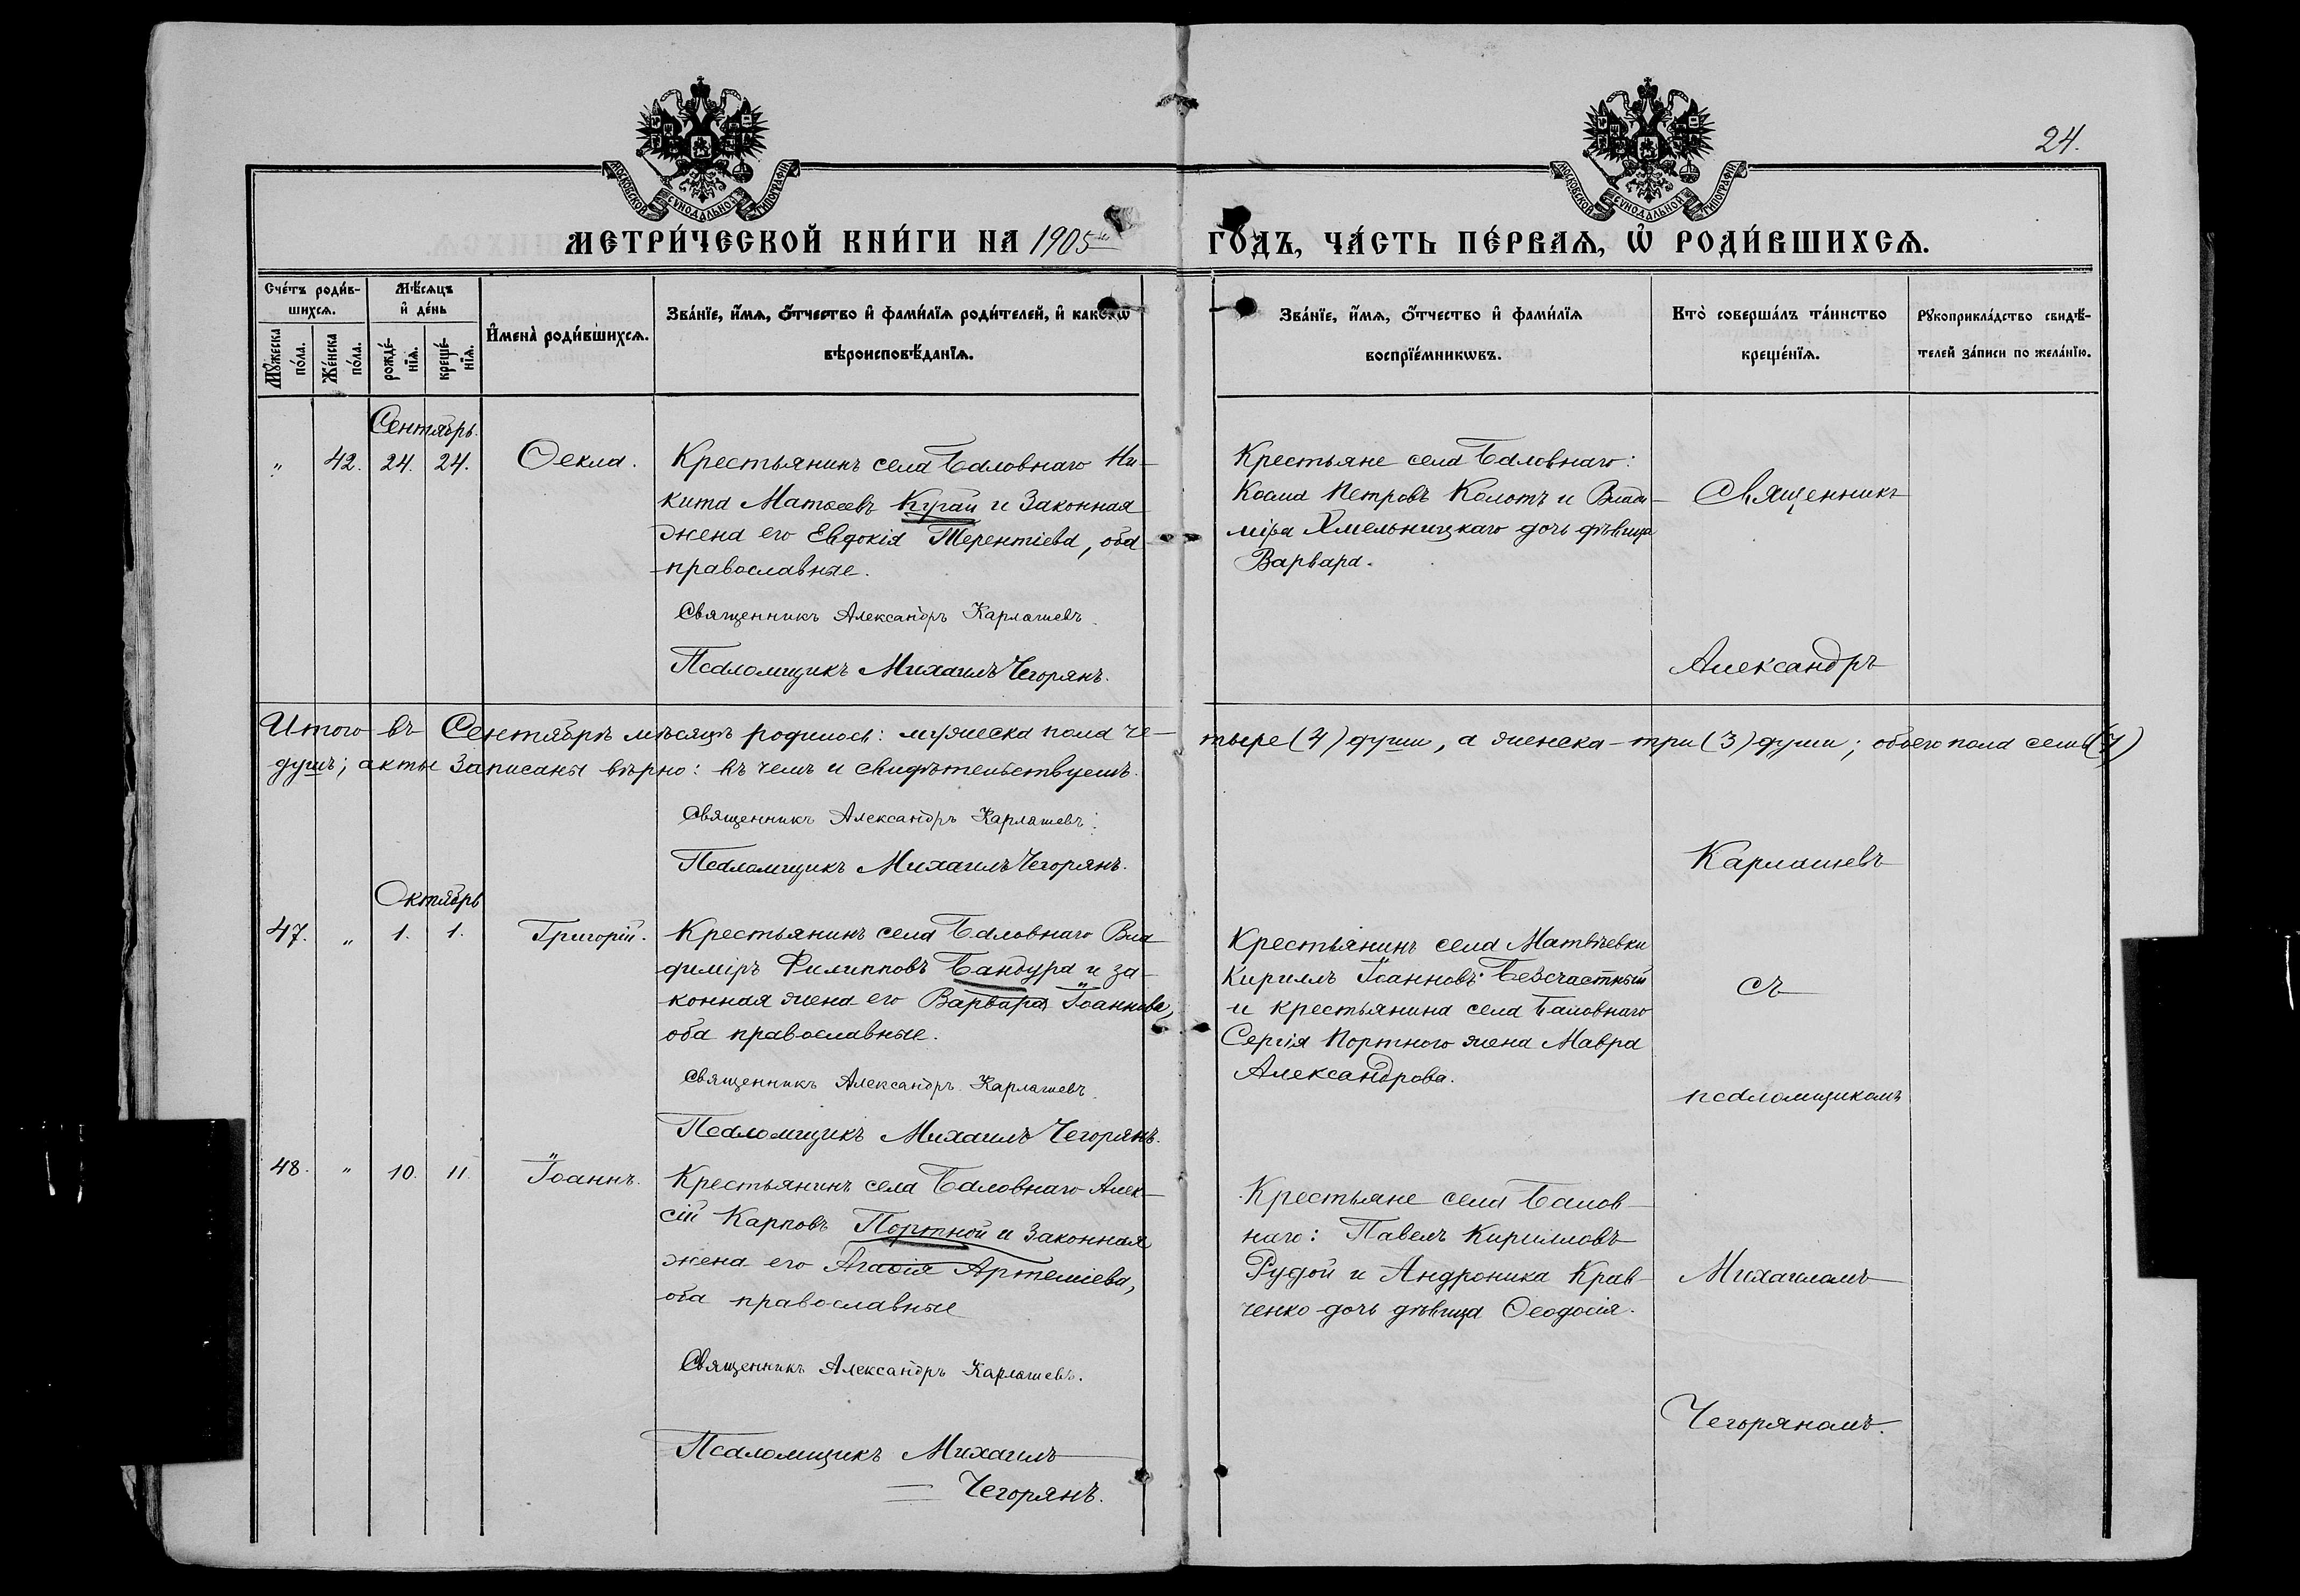 МОСКОВСКОЙ СѴНОДАЛЬНОЙ ТИПОГРАФІИ
МОСКОВСКОЙ СѴНОДАЛЬНОЙ ТИПОГРАФІИ
24.
МЕТРИ́ЧЕСКОЙ КНИ́ГИ НА 1905
ГО́ДЪ, ЧА́СТЬ ПЕ́РВАѦ, Ѡ҆ РОДИ́ВШИХСѦ.
Сче́тъ роди́в-
шихсѧ.
Мꙋ́жеска по́ла.
Же́нска по́ла.
Мѣ́сѧцъ
и҆ де́нь
рожде́-нїѧ.
креще́-нїѧ.
И҆мена̀ роди́вшихсѧ.
Зва́нїе, и҆́мѧ, ѻ҆́тчество и҆ фами́лїѧ роди́телей, и҆ како́гѡ
вѣроисповѣ́данїѧ.
Зва́нїе, и҆́мѧ, ѻ҆́тчество и҆ фами́лїѧ
воспрїе́мникѡвъ.
Кто̀ соверша́лъ та́инство
креще́нїѧ.
Рꙋкоприкла́дство свидѣ́-
телей за́писи по жела́нїю.
Сентябрь.
" 42. 24. 24. Ѳекла.
Крестьянинъ села Баловнаго Ни-
кита Матѳеевъ Кугай и законная
жена его Евдокія Терентіева, оба
православные.
Священникъ Александръ Карлашевъ.
Псаломщикъ Михаилъ Чегорянъ.
Крестьяне села Баловнаго:
Косма Петровъ Колотъ и Влади-
міра Хмельницкаго дочь дѣвица
Варвара.
Священникъ
Александръ
Итого въ Сентябрѣ мѣсяцѣ родилось: мужеска пола че-
тыре (4) души, а женска - три (3) души; обоего пола семь (7)
душъ; акты записаны вѣрно: въ чемъ и свидѣтельствуемъ.
Священникъ Александръ Карлашевъ.
Псаломщикъ Михаилъ Чегорянъ.
Карлашевъ
Октябрь
47. " 1. 1. Григорій.
Крестьянинъ села Баловнаго Вла
диміръ Филипповъ Бандура и за-
конная жена его Варвара Іоаннова,
оба православные.
Священникъ Александръ Карлашевъ
Псаломщикъ Михаилъ Чегорянъ.
Крестьянинъ села Матвѣевки
Кириллъ Іоанновъ Безсчастный
и крестьянина села Баловнаго
Сергія Портного жена Мавра
Александрова.
съ
псаломщикомъ
48. " 10. 11. Іоаннъ.
Крестьянинъ села Баловнаго Алек-
сій Карповъ Портной и законная
жена его Агаѳія Артеміева,
оба православные
Священникъ Александръ Карлашевъ.
Псаломщикъ Михаилъ
Чегорянъ.
Крестьяне села Балов-
наго: Павелъ Кирилловъ
Рудой и Андроника Крав-
ченко дочь дѣвица Ѳеодосія.
Михаиломъ
Чегоряномъ.